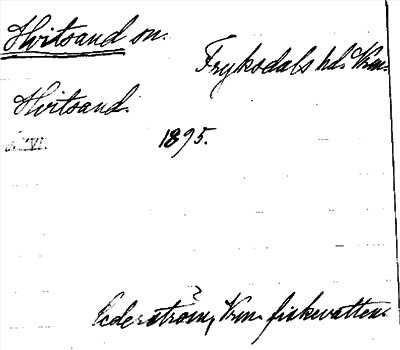 Hvitsand sn.
Fryksdals hd. Vrm.
Hvitsand.
1895.
Cederström, Vrm. fiskevatten.